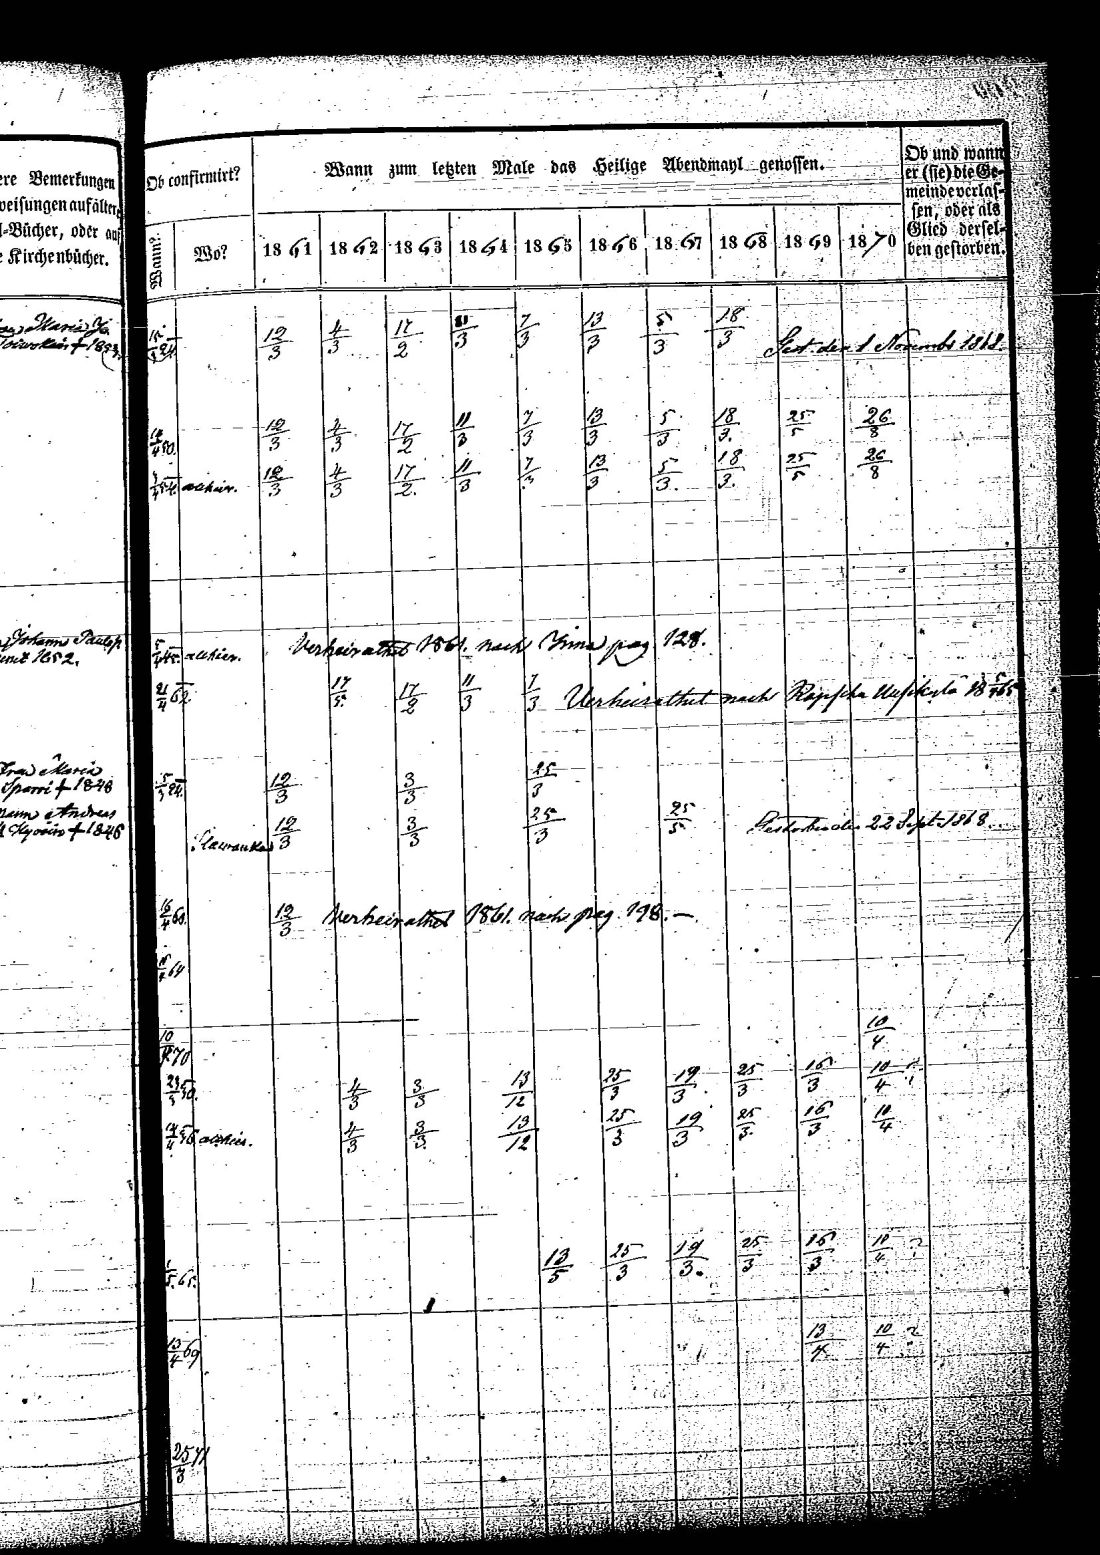 ere Bemerkungen
weisungen aufälter,
l-Bücher, oder auf
e Kirchenbücher.
Ob confirmirt?
Wann?
Wo?
Wann zum letzten Male das Heilige Abendmahl genossen.
1861 1862 1863 1864 1865 1866 1867 1868 1869 1870
Ob und wann
er (sie) die Ge-
meinde verlas-
sen, oder als
Glied dersel-
ben gestorben.
Maria
† 1853.
12/3 4/3 17/2 11/3 7/3 13/3 5/3 18/3
Gest. den 1 Novembr 1868.
14/4 50. 12/3 4/3 17/2 11/3 7/3 13/3 5/3 18/3. 25/5 26/8
54. allhier. 12/3 4/3 17/2. 11/3 7/3 13/3 5/3. 18/3. 25/5 26/8
Johann
1852.
5/4 45. allhier. Verheirathet 1861. nach pag 128.
21/4 62 17/5. 17/2 11/3 7/3 Verheirathet nach
Frau Maria
† 1848
5/3 24. 12/3 3/3 25/3
Andreas
† 1846
12/3 3/3 25/3 25/5 Gestorben den 22 Sept. 1868.
16/4 60. 12/3 Verheirathet 1861. nach pag. 198. —
64
10/4 70 10/4
50. 4/3 3/3 13/12 25/3 19/3. 25/3 16/3 10/4 ?
56 allhier. 4/3 3/3. 13/12 25/3 19/3 25/3. 16/3 10/4
1/5. 65. 13/5 25/3 19/3. 25/3 16/3 10/4 ?
13/4 69 13/4 10/4 ?
25/3 71